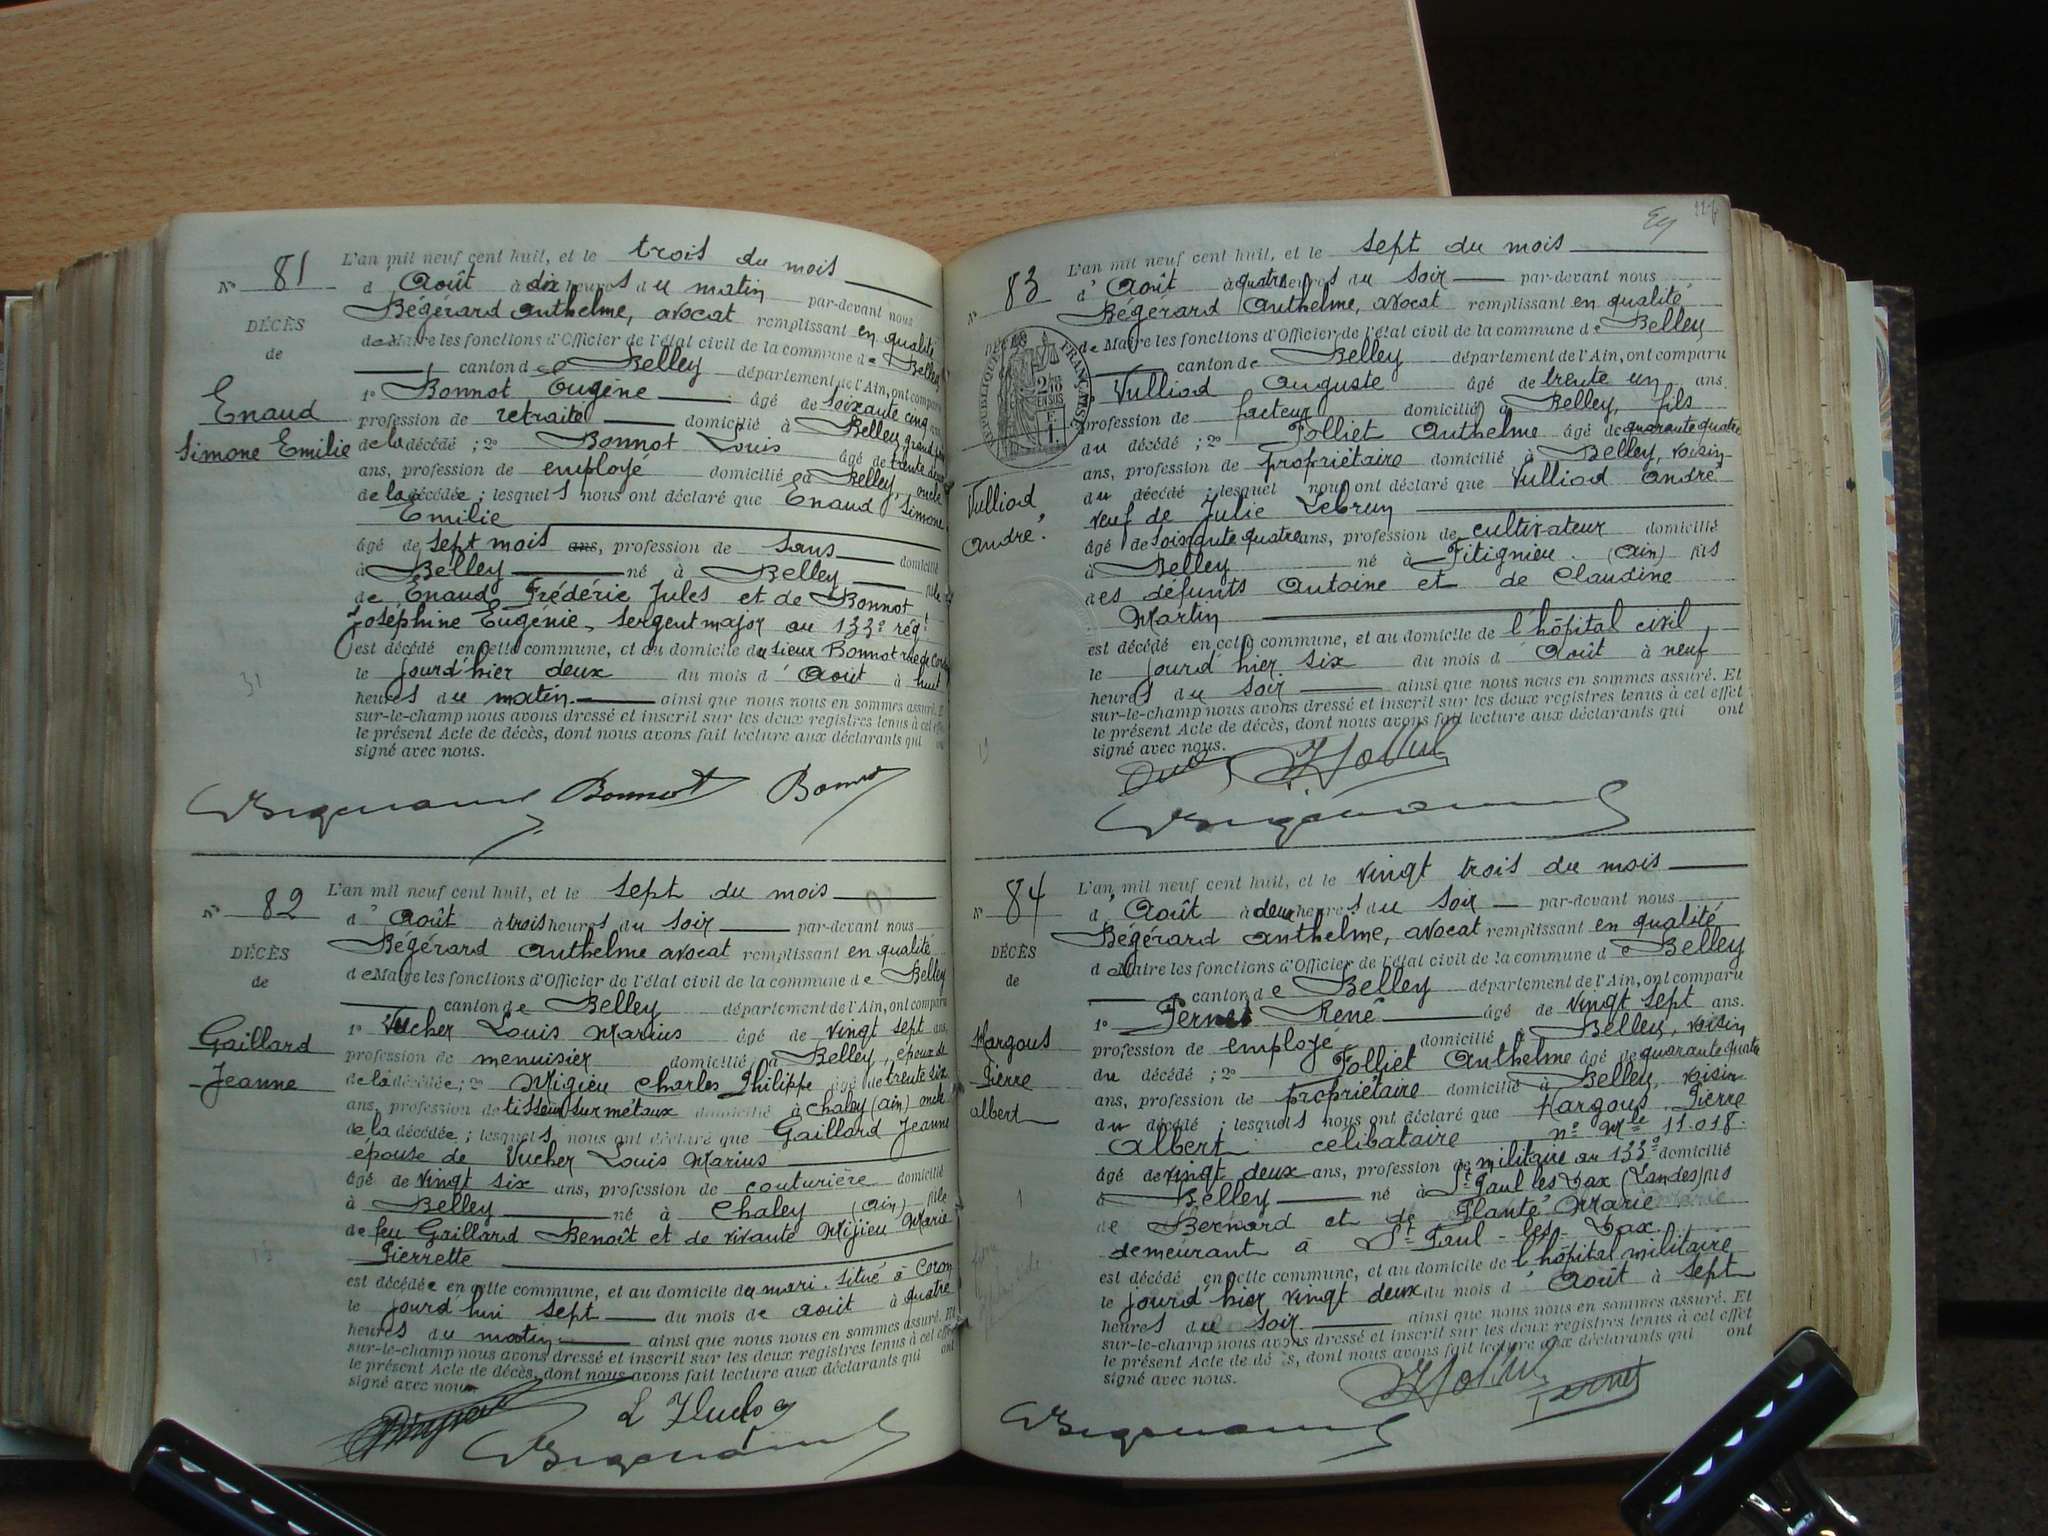 N° 81
DÉCÈS
de
Enaud
Simone Emilie
L'an mil neuf cent huit, et le trois du mois
d'Août à dix heures du matin par-devant nous
Bégérard Anthelme, avocat remplissant en qualité
de Maire les fonctions d'Officier de l'état civil de la commune de Belley
canton de Belley département de l'Ain, ont comparu
1° Bonnot Eugène âgé de soixante cinq ans
profession de retraité domicilié à Belley grand père
de la décédé ; 2° Bonnot Louis âgé de trente deux
ans, profession de employé domicilié à Belley, oncle
de la décédée ; lesquels nous ont déclaré que Enaud Simone
Emilie
âgé de sept mois ans, profession de sans domicilié
à Belley né à Belley fille
de Enaud Frédéric Jules et de Bonnot
Joséphine Eugénie, sergent major au 133e régt
est décédé en cette commune, et au domicile du sieur Bonnot rue de
le jourd'hier deux du mois d'Août à huit
heures du matin ainsi que nous nous en sommes assuré. Et
sur-le-champ nous avons dressé et inscrit sur les deux registres tenus à cet effet
le présent Acte de décès, dont nous avons fait lecture aux déclarants qui ont
signé avec nous.
Bonnot Bonnot
N° 82
DÉCÈS
de
Gaillard
Jeanne
L'an mil neuf cent huit, et le sept du mois
d'Août à trois heures du soir par-devant nous
Bégérard Anthelme avocat remplissant en qualité
de Maire les fonctions d'Officier de l'état civil de la commune de Belley
canton de Belley département de l'Ain, ont comparu
1° Vucher Louis Marius âgé de vingt sept ans,
profession de menuisier domicilié à Belley, époux de
de la décédée ; 2° Migieu Charles Philippe âgé de trente six
ans, profession de tisseur sur métaux domicilié à Chaley (Ain) oncle
de la décédée ; lesquels nous ont déclaré que Gaillard Jeanne
épouse de Vucher Louis Marius
âgé de vingt six ans, profession de couturière domicilié
à Belley né à Chaley (Ain) fille
de feu Gaillard Benoît et de vivante Mijieu Marie
Pierrette
est décédée en cette commune, et au domicile du mari. situé à Coron
le jourd'hui sept du mois de août à quatre
heures du matin ainsi que nous nous en sommes assuré. Et
sur-le-champ nous avons dressé et inscrit sur les deux registres tenus à cet effet
le présent Acte de décès, dont nous avons fait lecture aux déclarants qui ont
signé avec nous.
N° 83
RÉPUBLIQUE FRANÇAISE
Vulliod
André
L'an mil neuf cent huit, et le sept du mois
d'Août à quatre heures du soir par-devant nous
Bégérard Anthelme, avocat remplissant en qualité
de Maire les fonctions d'Officier de l'état civil de la commune de Belley
canton de Belley département de l'Ain, ont comparu
Vulliod Auguste âgé de trente un ans.
profession de facteur domicilié à Belley, fils
du décédé ; 2° Folliet Anthelme âgé de quarante quatre
ans, profession de propriétaire domicilié à Belley, voisin
du décédé ; lesquel nous ont déclaré que Vulliod André
veuf de Julie Lebrun
âgé de soixante quatre ans, profession de cultivateur domicilié
à Belley né à Fitignieu (Ain) fils
des défunts Antoine et de Claudine
Martin
est décédé en cette commune, et au domicile de l'hôpital civil,
le jourd'hier six du mois d'Août à neuf
heures du soir ainsi que nous nous en sommes assuré. Et
sur-le-champ nous avons dressé et inscrit sur les deux registres tenus à cet effet
le présent Acte de décès, dont nous avons fait lecture aux déclarants qui ont
signé avec nous.
N° 84
DÉCÈS
de
Hargous
Pierre
Albert
L'an mil neuf cent huit, et le vingt trois du mois
d'Août à deux heures du soir par-devant nous
Bégérard Anthelme, avocat remplissant en qualité
de Maire les fonctions d'Officier de l'état civil de la commune de Belley
canton de Belley département de l'Ain, ont comparu
1° Fernet René âgé de vingt sept ans.
profession de employé domicilié à Belley, voisin
du décédé ; 2° Folliet Anthelme âgé de quarante quatre
ans, profession de propriétaire domicilié à Belley, voisin
du décédé ; lesquels nous ont déclaré que Hargous Pierre
Albert célibataire n° Mle 11.018.
âgé de vingt deux ans, profession de militaire au 133e domicilié
à Belley né à St Paul les Dax (Landes) fils
de Bernard et de Planté Marie
demeurant à St Paul-les-Dax.
est décédé en cette commune, et au domicile de l'hôpital militaire
le jourd'hier vingt deux du mois d'Août à sept
heures du soir. ainsi que nous nous en sommes assuré. Et
sur-le-champ nous avons dressé et inscrit sur les deux registres tenus à cet effet
le présent Acte de décès, dont nous avons fait lecture aux déclarants qui ont
signé avec nous.
Fernet